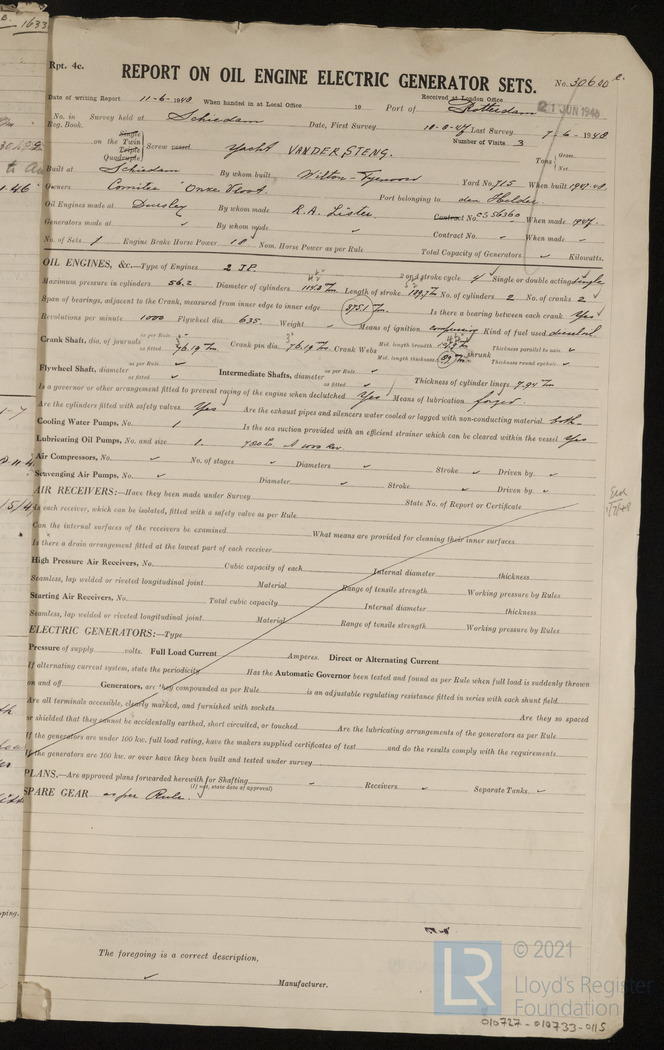 1633
Rpt. 4c.
REPORT ON OIL ENGINE ELECTRIC GENERATOR SETS.
No. 30600 c.
Received at London Office
21 JUN 1948
Date of writing Report 11-6-1948 When handed in at Local Office 19 Port of Rotterdam
No. in Reg. Book. Survey held at Schiedam Date, First Survey 10-8-47 Last Survey 7-6-1948
Number of Visits 3
on the Single Twin Triple Quadruple Screw vessel Yacht VAN DER STENG. Tons Gross. Net.
Built at Schiedam By whom built Wilton-Fijenoord Yard No. 715 When built 1947-48
Owners Comitee "Onze Vloot" Port belonging to den Helder
Oil Engines made at Dursley By whom made R.A. Lister Contract No. CS 56360 When made 1947.
Generators made at By whom made Contract No. When made
No. of Sets 1 Engine Brake Horse Power 18 Nom. Horse Power as per Rule Total Capacity of Generators Kilowatts.
OIL ENGINES, &c.—Type of Engines 2 J.P. 2 or 4 stroke cycle 4 Single or double acting single
Maximum pressure in cylinders 56.2 Diameter of cylinders 114.3 Length of stroke 139.7 No. of cylinders 2 No. of cranks 2
Span of bearings, adjacent to the Crank, measured from inner edge to inner edge 375.1 Is there a bearing between each crank Yes
Revolutions per minute 1000 Flywheel dia. 635 Weight Means of ignition compression Kind of fuel used diesel oil
Crank Shaft, dia. of journals as per Rule as fitted 76.19 Crank pin dia. 76.19 Crank Webs Mid. length breadth Mid. length thickness shrunk Thickness parallel to axis Thickness round eyehole
Flywheel Shaft, diameter as per Rule as fitted Intermediate Shafts, diameter as per Rule as fitted Thickness of cylinder liners 7.94
Is a governor or other arrangement fitted to prevent racing of the engine when declutched Yes Means of lubrication forced
Are the cylinders fitted with safety valves Yes Are the exhaust pipes and silencers water cooled or lagged with non-conducting material both
Cooling Water Pumps, No. 1 Is the sea suction provided with an efficient strainer which can be cleared within the vessel Yes
Lubricating Oil Pumps, No. and size 1.
Air Compressors, No. No. of stages Diameters Stroke Driven by
Scavenging Air Pumps, No. Diameter Stroke Driven by
AIR RECEIVERS:—Have they been made under Survey State No. of Report or Certificate
Is each receiver, which can be isolated, fitted with a safety valve as per Rule
Can the internal surfaces of the receivers be examined What means are provided for cleaning their inner surfaces
Is there a drain arrangement fitted at the lowest part of each receiver
High Pressure Air Receivers, No. Cubic capacity of each Internal diameter thickness
Seamless, lap welded or riveted longitudinal joint Material Range of tensile strength Working pressure by Rules
Starting Air Receivers, No. Total cubic capacity Internal diameter thickness
Seamless, lap welded or riveted longitudinal joint Material Range of tensile strength Working pressure by Rules
ELECTRIC GENERATORS:—Type
Pressure of supply volts. Full Load Current Amperes. Direct or Alternating Current
If alternating current system, state the periodicity Has the Automatic Governor been tested and found as per Rule when full load is suddenly thrown
on and off Generators, are they compounded as per Rule is an adjustable regulating resistance fitted in series with each shunt field
Are all terminals accessible, clearly marked, and furnished with sockets Are they so spaced
or shielded that they cannot be accidentally earthed, short circuited, or touched Are the lubricating arrangements of the generators as per Rule
If the generators are under 100 kw. full load rating, have the makers supplied certificates of test and do the results comply with the requirements
If the generators are 100 kw. or over have they been built and tested under survey
PLANS.—Are approved plans forwarded herewith for Shafting Receivers Separate Tanks
(If not, state date of approval)
SPARE GEAR as per Rule.
The foregoing is a correct description,
Manufacturer.
LR
© 2021
Lloyd's Register
Foundation
010727-010733-0115